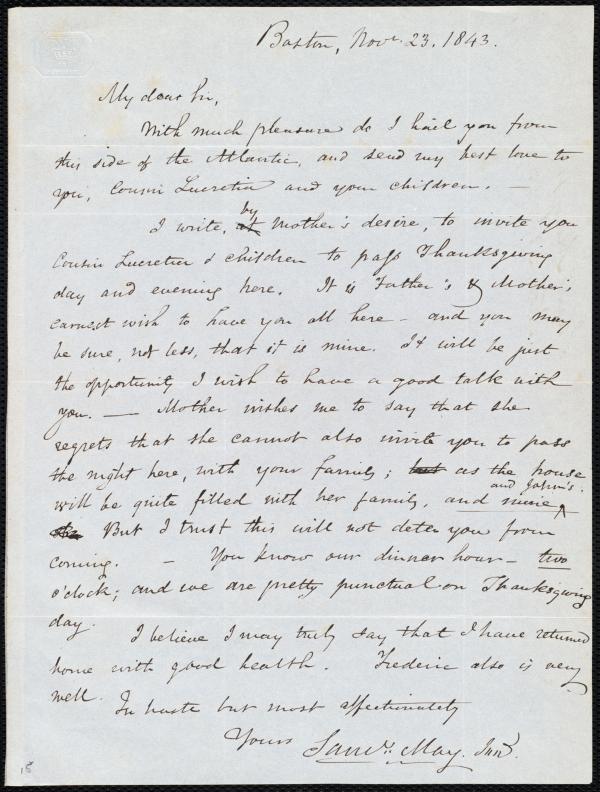 Boston, Novr. 23. 1843.
My dear Sir,
With much pleasure do I hail you from
this side of the Atlantic, and send my best love to
you, Cousin Lucretia and your children. —
I write, by at Mother's desire, to invite you
Cousin Lucretia & children to pass Thanksgiving
day and evening here. It is Father's & Mother's
earnest wish to have you all here – and you may
be sure, not less, that it is mine. It will be just
the opportunity I wish to have a good talk with
you. — Mother wishes me to say that she
regrets that she cannot also invite you to pass
the night here, with your family; but as the house
will be quite filled with her family, and mine and John's.
But I trust this will not deter you from
coming. – You know our dinner hour – two
o'clock; and we are pretty punctual on Thanksgiving
day.
I believe I may truly say that I have returned
home with good health. Frederic also is very
well.
In haste but most affectionately
Yours Saml. May. Junr.
18